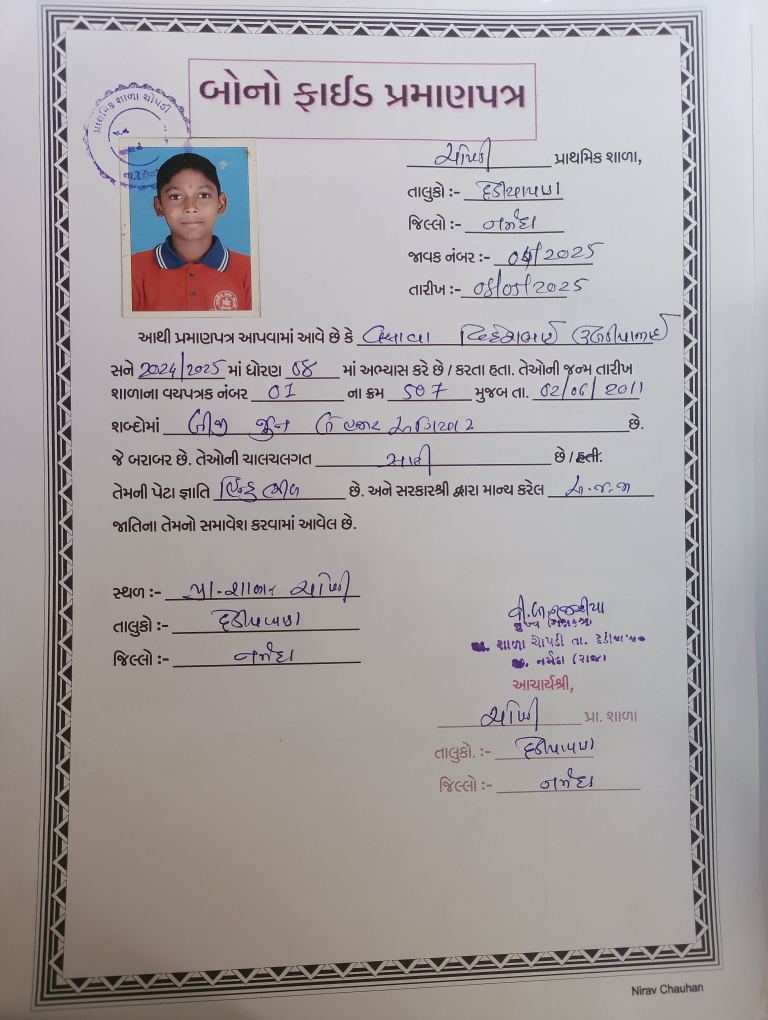 બોનો ફાઈડ પ્રમાણપત્ર
પ્રાથમિક શાળા ચોપડી
ચોપડી પ્રાથમિક શાળા,
તાલુકો :- દેડીયાપાડા
જિલ્લો :- નર્મદા
જાવક નંબર :- /2025
તારીખ :- 2025
આથી પ્રમાણપત્ર આપવામાં આવે છે કે વસાવા
સને 2024/2025 માં ધોરણ 08 માં અભ્યાસ કરે છે / કરતા હતા. તેઓની જન્મ તારીખ
શાળાના વયપત્રક નંબર 01 ના ક્રમ 507 મુજબ તા. 02/06/2011
શબ્દોમાં બીજી જુન બે હજાર અગિયાર છે.
જે બરાબર છે. તેઓની ચાલચલગત સારી છે / હતી.
તેમની પેટા જ્ઞાતિ હિન્દુ ભીલ છે. અને સરકારશ્રી દ્વારા માન્ય કરેલ અ.જ.જા
જાતિના તેમનો સમાવેશ કરવામાં આવેલ છે.
સ્થળ :- પ્રા.શાળા ચોપડી
તાલુકો :- દેડીયાપાડા
જિલ્લો :- નર્મદા
મુખ્ય શિક્ષક
શાળા ચોપડી તા. દેડીયાપાડા
નર્મદા (રાજ)
આચાર્યશ્રી,
ચોપડી પ્રા. શાળા
તાલુકો. :- દેડીયાપાડા
જિલ્લો :- નર્મદા
Nirav Chauhan